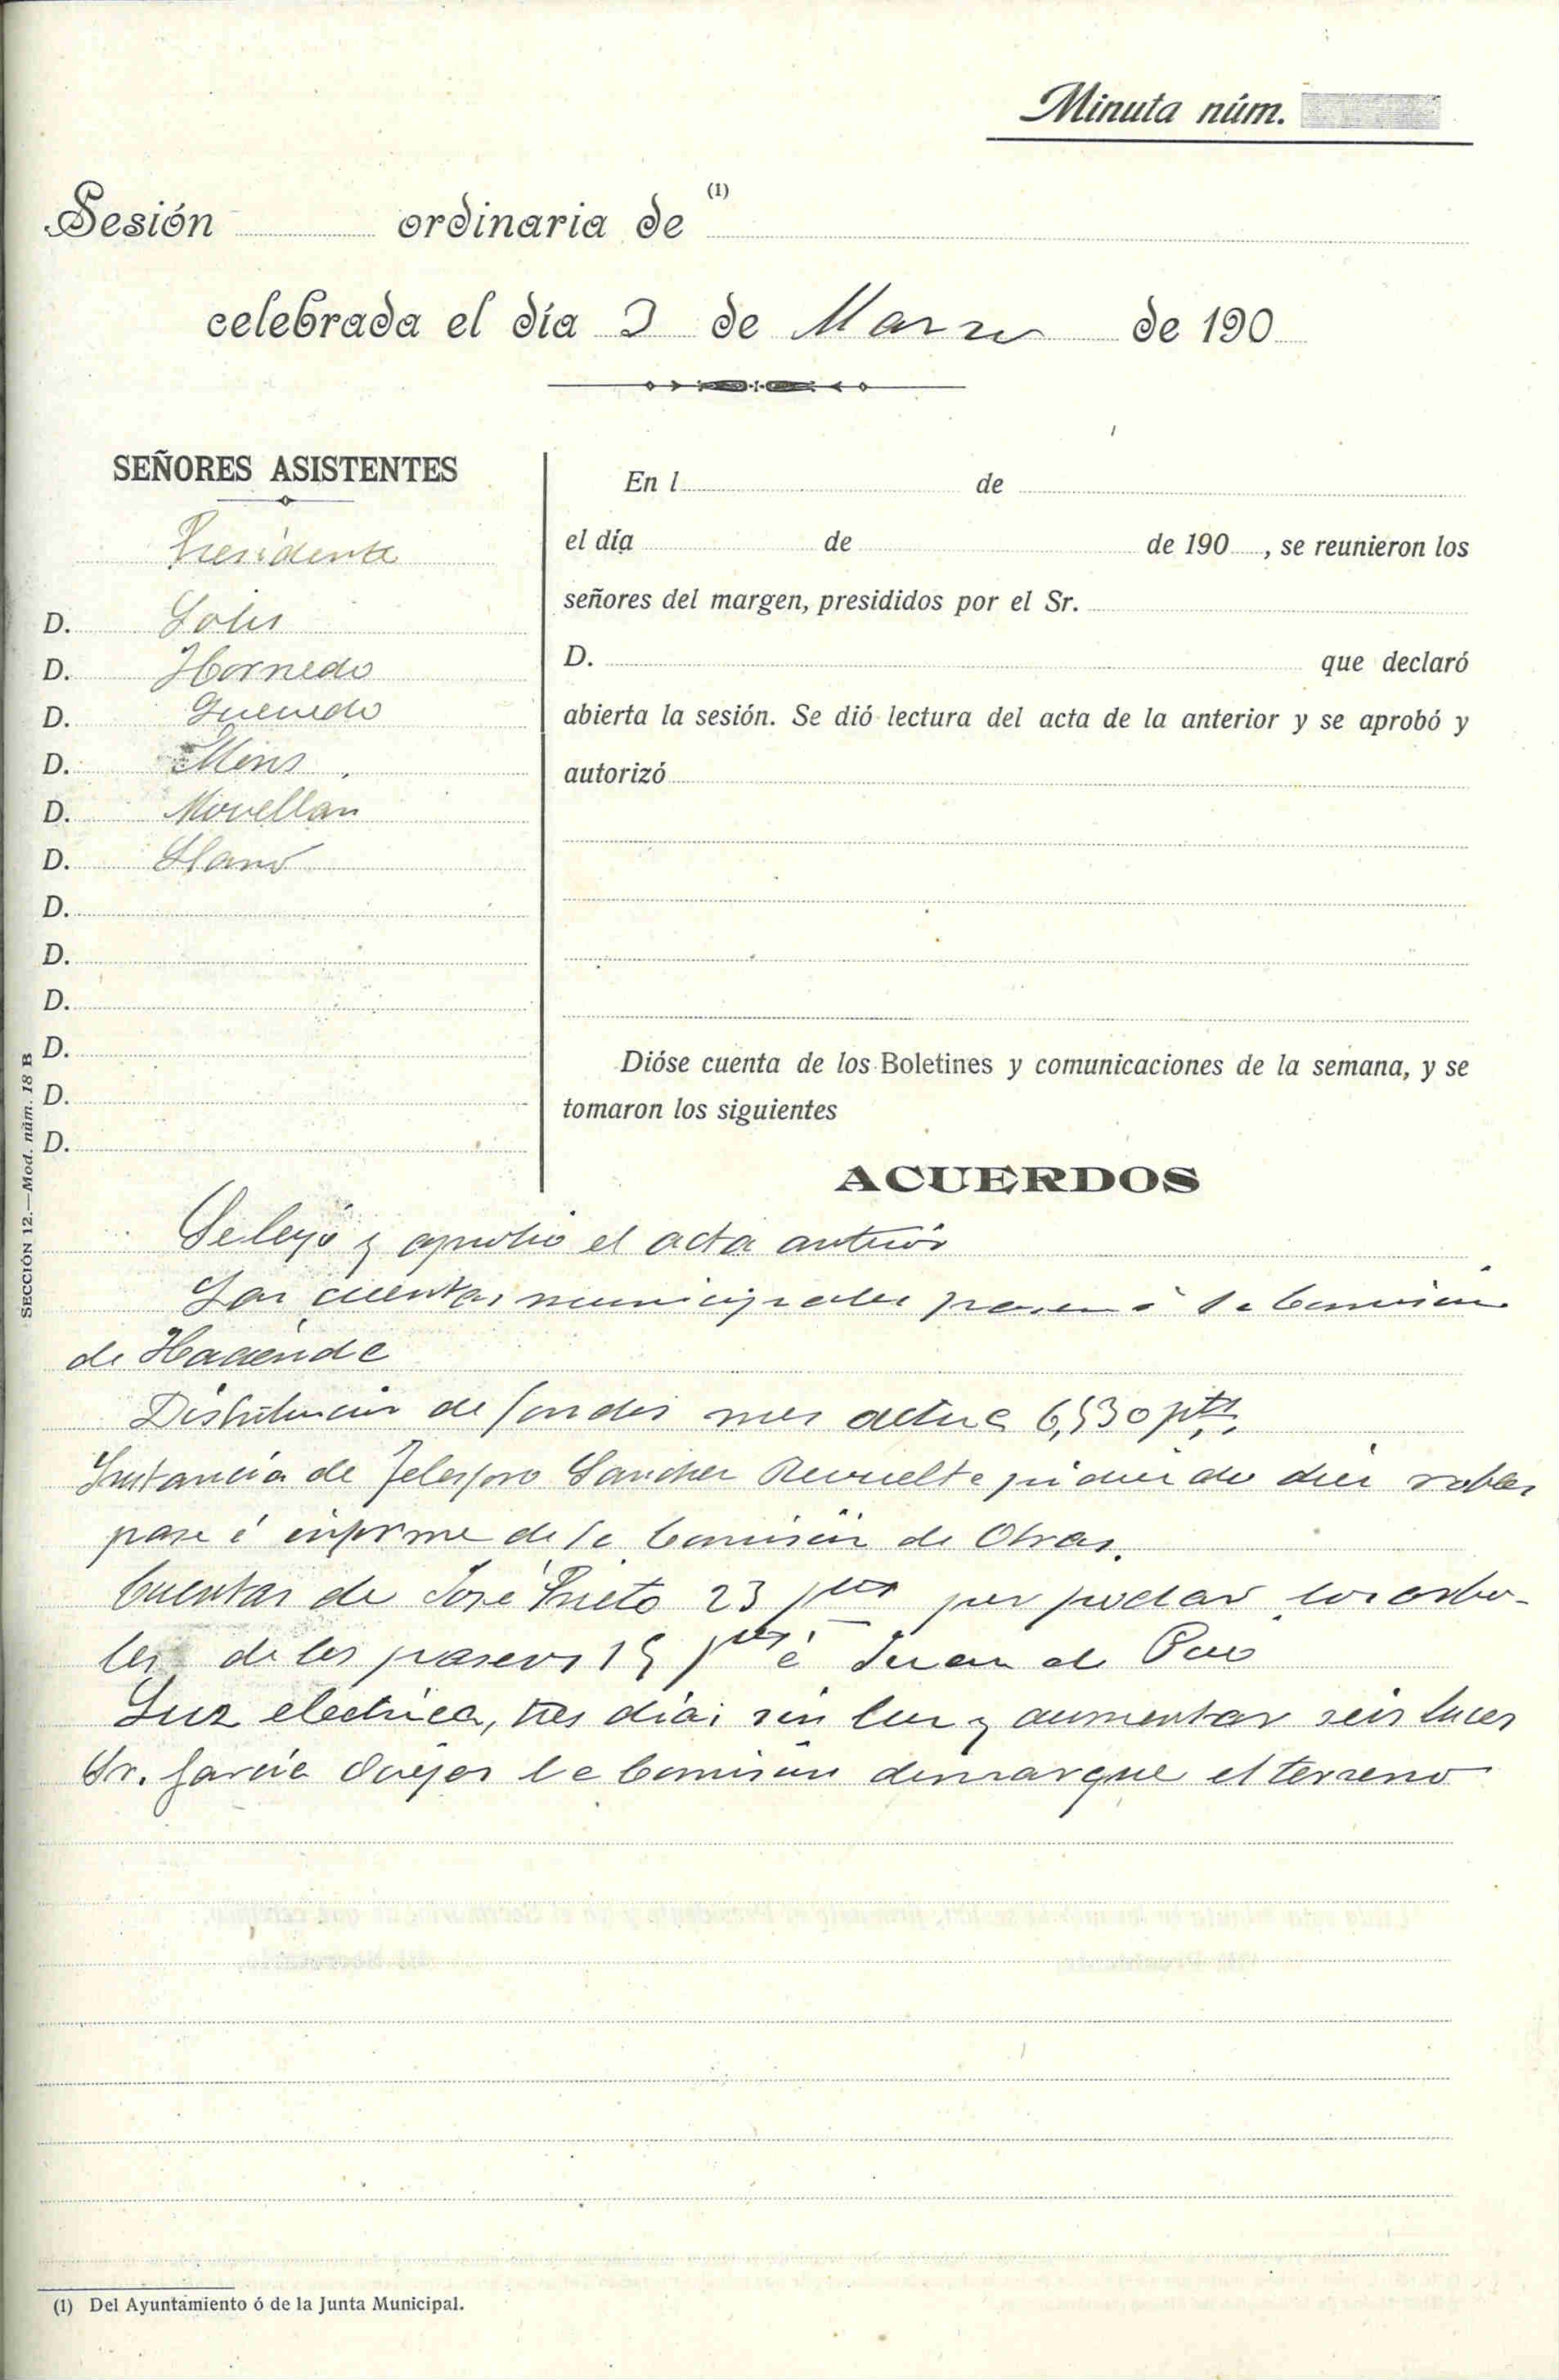 Minuta núm.
Sesión ordinaria de (1)
celebrada el día 3 de Marzo de 190
SEÑORES ASISTENTES
Presidente
D. Solis
D. Hornedo
D. Quevedo
D.
D. Movellan
D. Llano
D.
D.
D.
D.
D.
D.
En l de
el día de de 190 , se reunieron los
señores del margen, presididos por el Sr.
D. que declaró
abierta la sesión. Se dió lectura del acta de la anterior y se aprobó y
autorizó
Dióse cuenta de los Boletines y comunicaciones de la semana, y se
tomaron los siguientes
ACUERDOS
Se leyó y aprobó el acta anterior
Las cuentas municipales pasen á la Comisión
de Hacienda
Distribucion de fondos mes actual 6,530 pts,
Instancia de Telesforo Sanchez Revuelta pidiendo diez robles
pase á informe de la Comisión de Obras.
Cuentas de José Prieto 23 ptas por podar los arbo-
les de los paseos 15 ptas á Juan de
Luz electrica, tres días sin luz y aumentar seis luces
Sr. García la Comisión demarque el terreno
(1) Del Ayuntamiento ó de la Junta Municipal.
SECCIÓN 12.—Mod. núm. 18 B